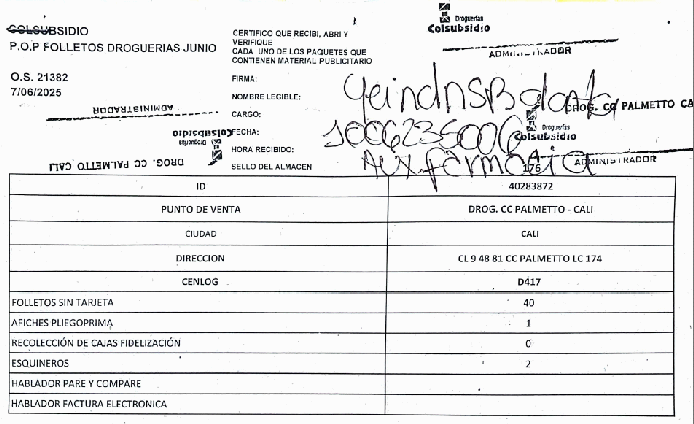 COLSUBSIDIO
P.O.P FOLLETOS DROGUERIAS JUNIO
O.S. 21382
7/06/2025
ADMINISTRADOR
Droguerías
Colsubsidio
DROG. CC PALMETTO CALI
CERTIFICO QUE RECIBI, ABRI Y
VERIFIQUE
CADA UNO DE LOS PAQUETES QUE
CONTENIEN MATERIAL PUBLICITARIO
FIRMA:
NOMBRE LEGIBLE:
CARGO:
FECHA:
HORA RECIBIDO:
SELLO DEL ALMACEN
Droguerías
Colsubsidio
ADMINISTRADOR
DROG. CC PALMETTO CA
Droguerías
Colsubsidio
Aux. farmacia
ADMINISTRADOR
175
ID 40283872
PUNTO DE VENTA DROG. CC PALMETTO - CALI
CIUDAD CALI
DIRECCION CL 9 48 81 CC PALMETTO LC 174
CENLOG D417
FOLLETOS SIN TARJETA 40
AFICHES PLIEGOPRIMA 1
RECOLECCIÓN DE CAJAS FIDELIZACIÓN 0
ESQUINEROS 2
HABLADOR PARE Y COMPARE
HABLADOR FACTURA ELECTRONICA